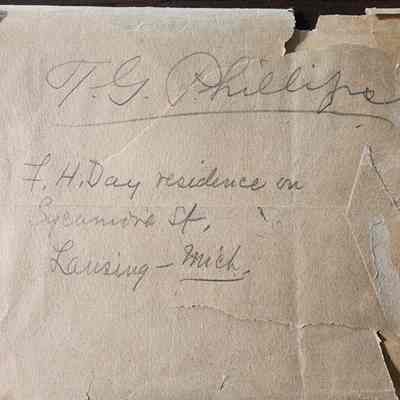 T. G. Phillips
F. H. Day residence on
Sycamore St,
Lansing - Mich.